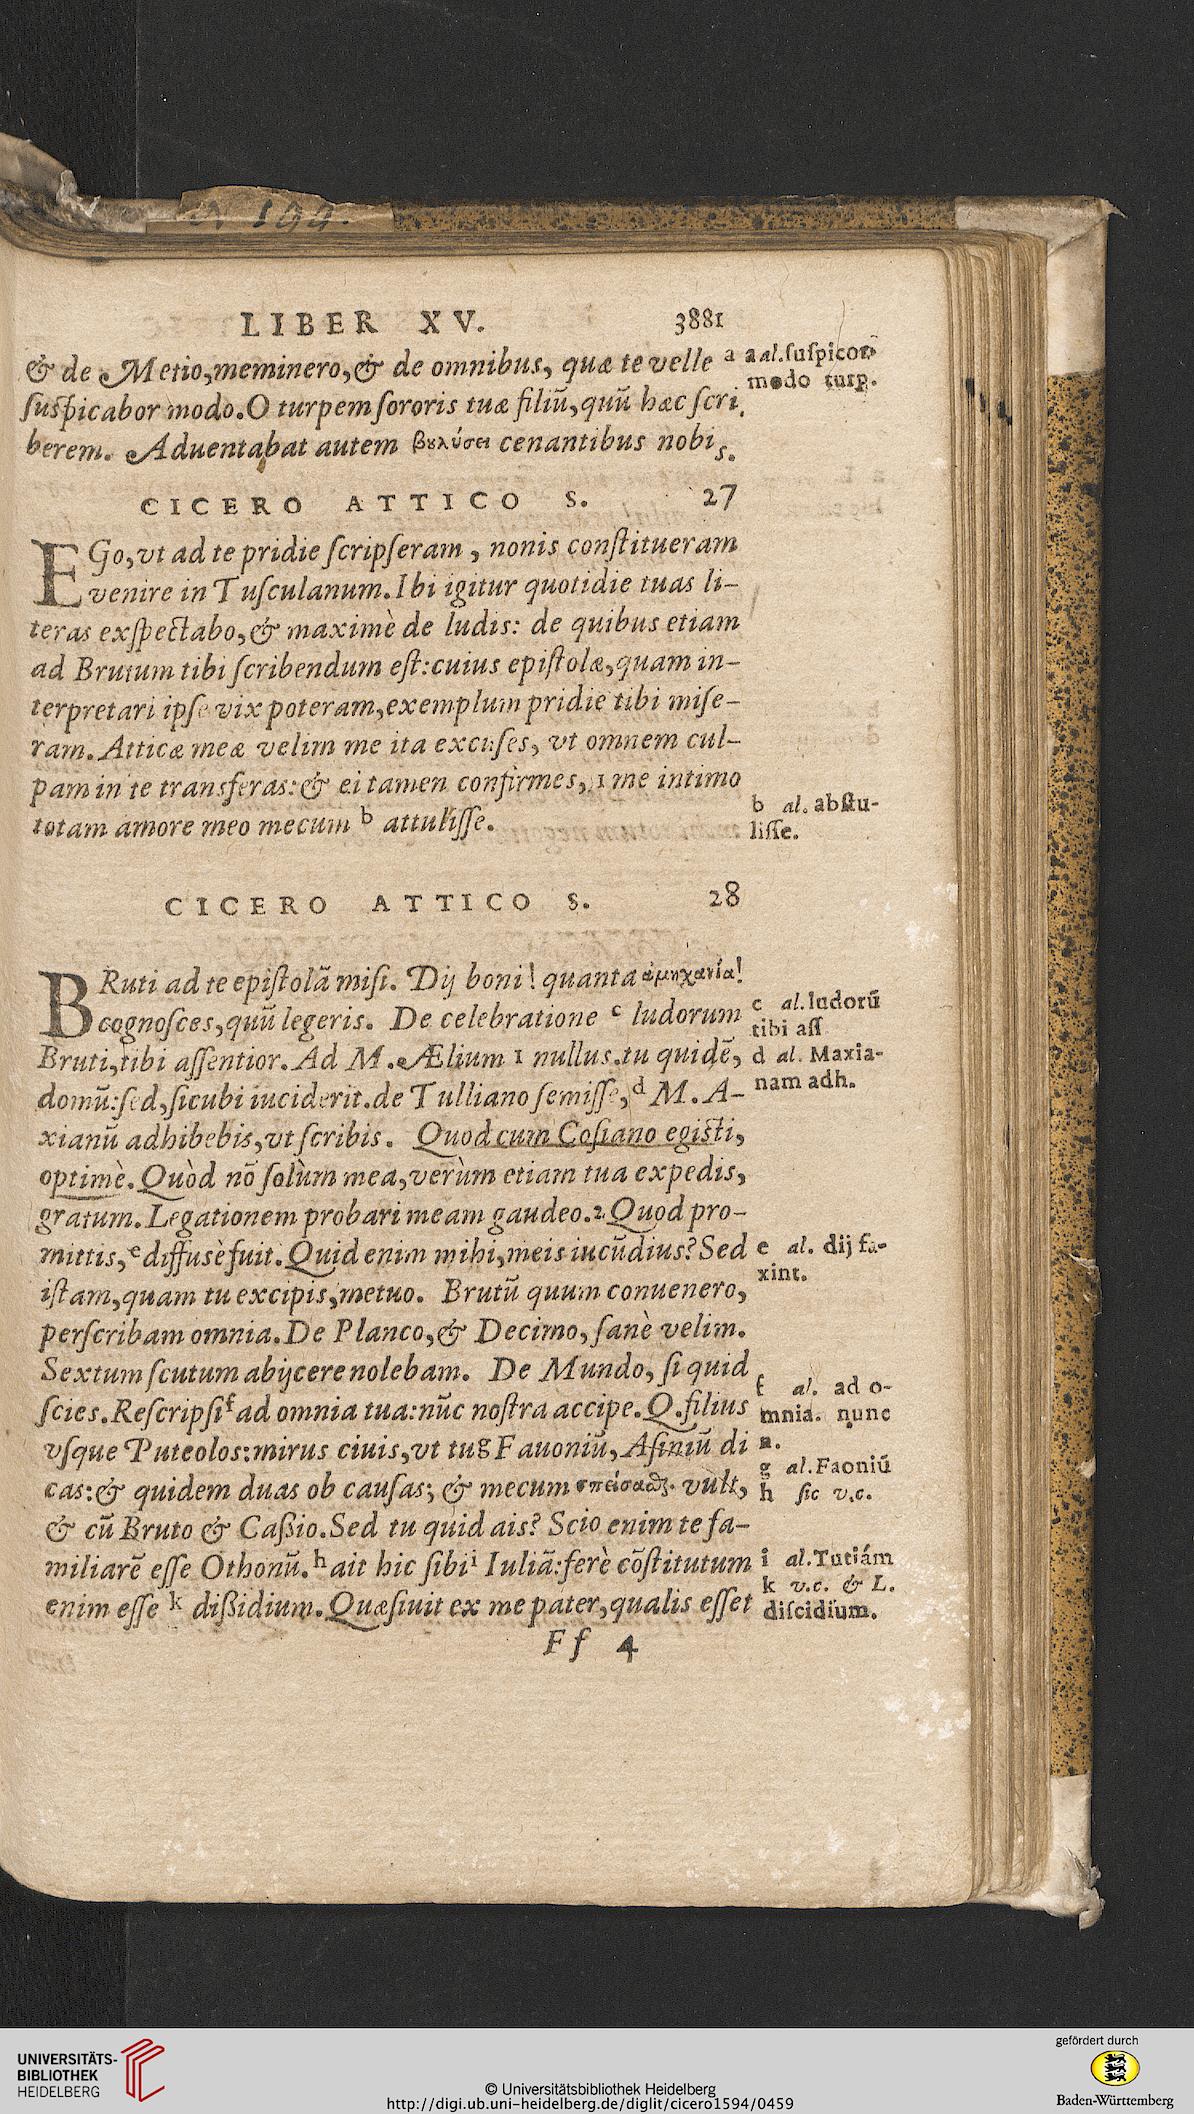 LIBER XV. 3881
& de Metio, meminero, & de omnibus, quæ te velle a
suspicabor modo. O turpem sororis tuæ filiū, quū hæc scri
berem. Aduentabat autem βουλύσει cenantibus nobis.
a al. suspicor
modo turp.
CICERO ATTICO S. 27
EGo, vt ad te pridie scripseram, nonis constitueram
venire in Tusculanum. Ibi igitur quotidie tuas li-
teras exspectabo, & maximè de ludis: de quibus etiam
ad Brutum tibi scribendum est: cuius epistolæ, quam in-
terpretari ipse vix poteram, exemplum pridie tibi mise-
ram. Atticæ meæ velim me ita excuses, vt omnem cul-
pam in te transferas: & ei tamen confirmes, 1 me intimo
totam amore meo mecum b attulisse.
b al. abstu-
lisse.
CICERO ATTICO S. 28
BRuti ad te epistolā misi. Dij boni! quanta ἀμηχανία!
cognosces, quū legeris. De celebratione c ludorum
Bruti, tibi assentior. Ad M. Ælium 1 nullus. tu quidē,
domū: sed, sicubi inciderit. de Tulliano semisse, d M. A-
xianū adhibebis, vt scribis. Quod cum Cosiano egisti,
optimè. Quòd nō solùm mea, verùm etiam tua expedis,
gratum. Legationem probari meam gaudeo. 2 Quod pro-
mittis, e diffusè fuit. Quid enim mihi, meis iucūdius? Sed
istam, quam tu excipis, metuo. Brutū quum conuenero,
perscribam omnia. De Planco, & Decimo, sanè velim.
Sextum scutum abijcere nolebam. De Mundo, si quid
scies. Rescripsi f ad omnia tua: nūc nostra accipe. Q. filius
vsque Puteolos: mirus ciuis, vt tu g Fauoniū, Asiniū di
cas: & quidem duas ob causas; & mecum vult,
& cū Bruto & Cassio. Sed tu quid ais? Scio enim te fa-
miliarē esse Othonū. h ait hic sibi i Iuliā: ferè cōstitutum
enim esse k dissidium. Quæsiuit ex me pater, qualis esset
Ff 4
c al. ludorū
tibi ass
d al. Maxia-
nam adh.
e al. dij fa-
xint.
f al. ad o-
mnia. nunc
n.
g al. Faoniū
h sic v.c.
i al. Tutiám
k v.c. & L.
discidium.
UNIVERSITÄTS-
BIBLIOTHEK
HEIDELBERG
© Universitätsbibliothek Heidelberg
http://digi.ub.uni-heidelberg.de/diglit/cicero1594/0459
gefördert durch
Baden-Württemberg